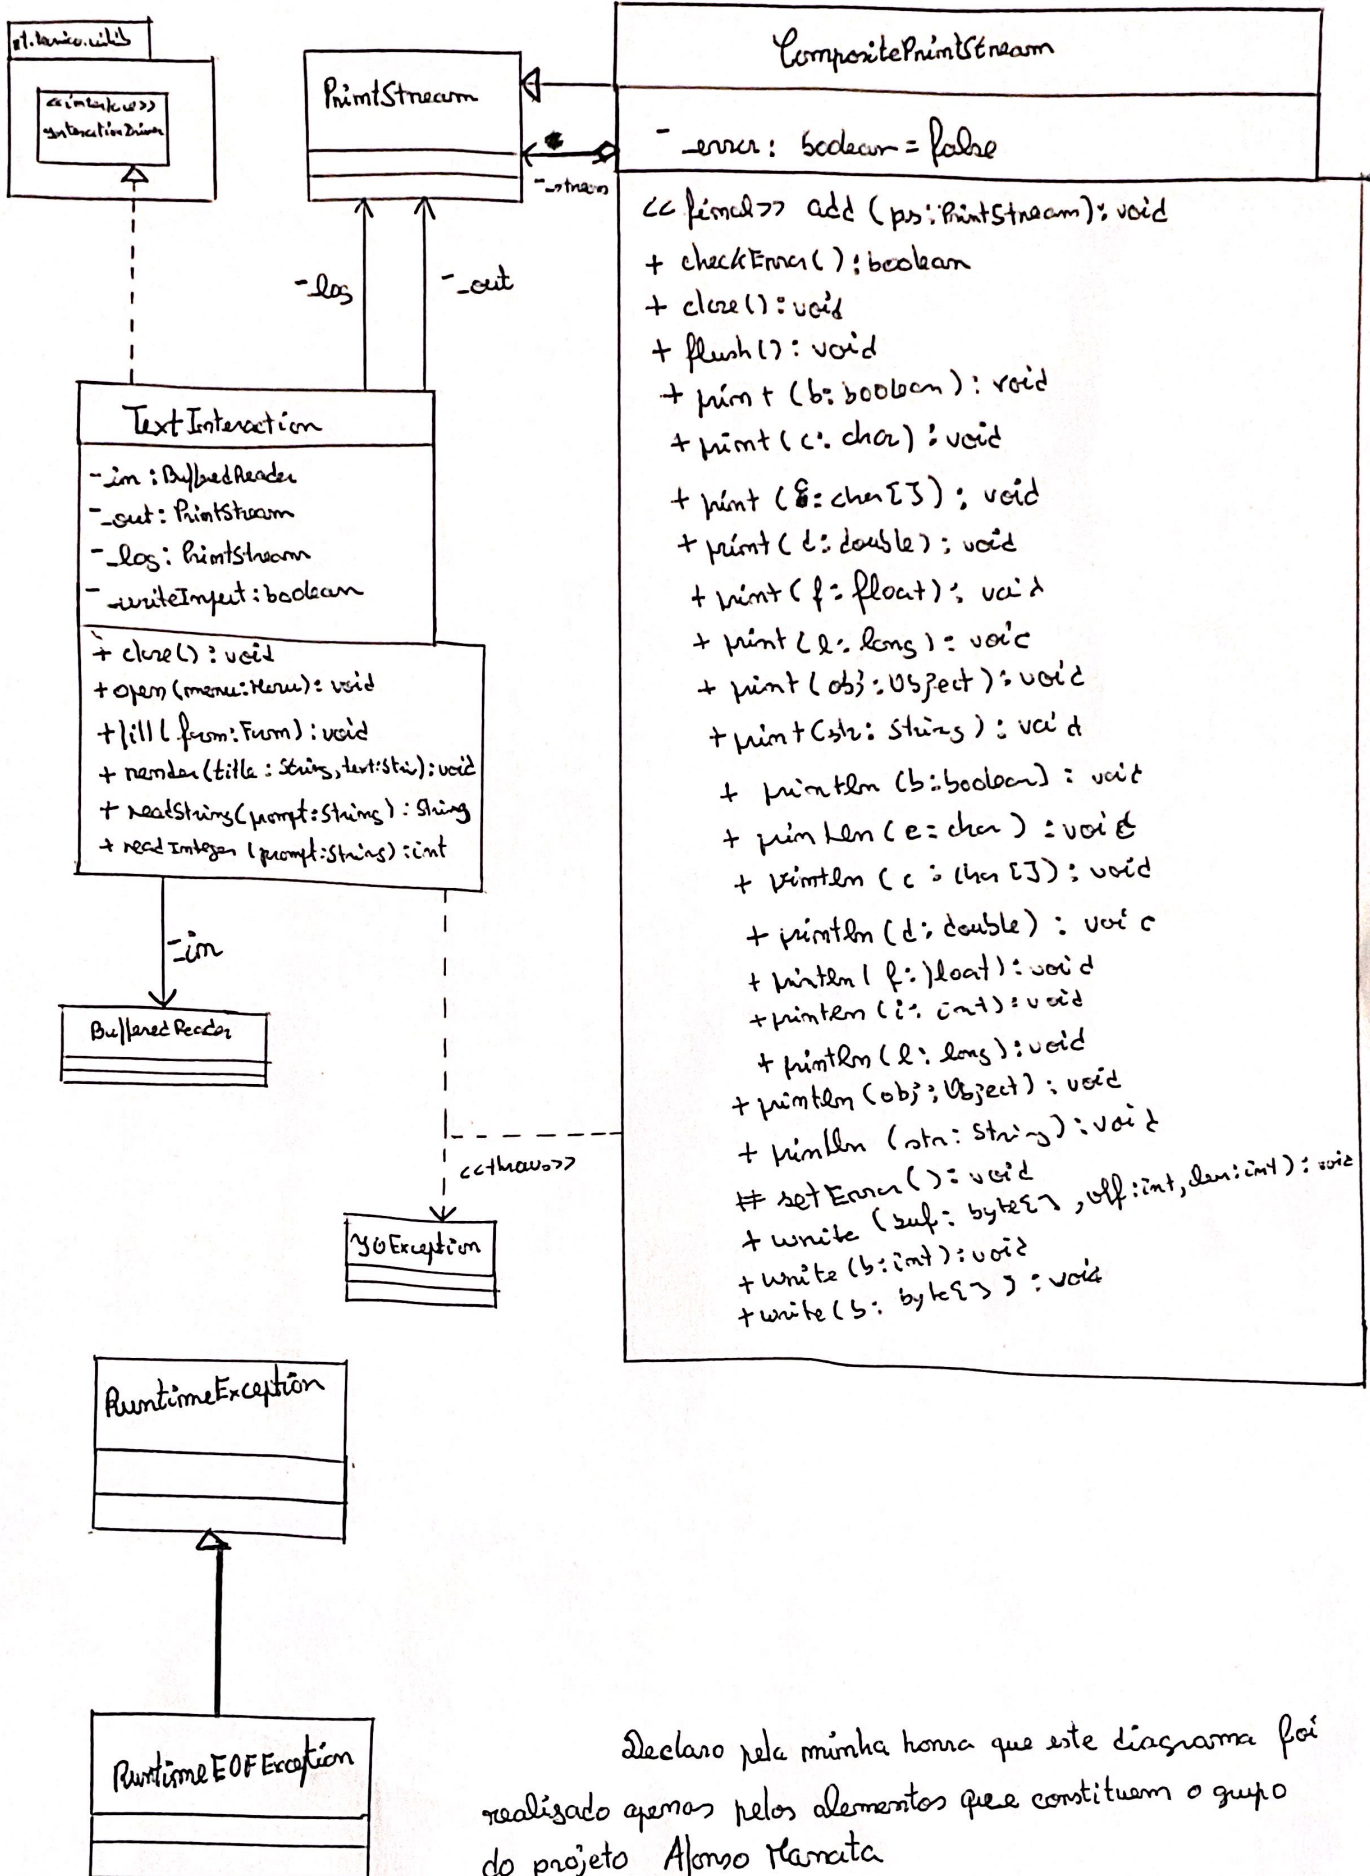 pt.tecnico.uilib
<<interface>>
InteractionDriver
PrintStream
CompositePrintStream
- _error: boolean = false
*
- _stream
<<final>> add (ps: PrintStream): void
+ checkError(): boolean
+ close(): void
+ flush(): void
+ print (b: boolean): void
+ print (c: char): void
+ print (c: char[]): void
+ print (d: double): void
+ print (f: float): void
+ print (l: long): void
+ print (obj: Object): void
+ print (str: String): void
+ println (b: boolean): void
+ println (c: char): void
+ println (c: char[]): void
+ println (d: double): void
+ println (f: float): void
+ println (i: int): void
+ println (l: long): void
+ println (obj: Object): void
+ println (str: String): void
# setError(): void
+ write (buf: byte[], off: int, len: int): void
+ write (b: int): void
+ write (b: byte[]): void
- _log
- _out
TextInteraction
- _in: BufferedReader
- _out: PrintStream
- _log: PrintStream
- _writeInput: boolean
+ close(): void
+ open (menu: Menu): void
+ fill (form: Form): void
+ render (title: String, text: Stri): void
+ readString (prompt: String): String
+ readInteger (prompt: String): int
- _in
BufferedReader
<<throws>>
IOException
RuntimeException
RuntimeEOFException
Declaro pela minha honra que este diagrama foi
realizado apenas pelos elementos que constituem o grupo
do projeto Afonso